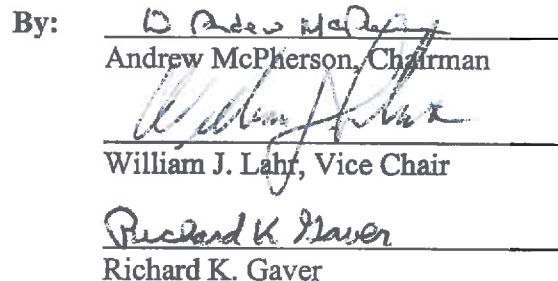 By: D Andrew McPherson
Andrew McPherson, Chairman
William J. Lahr
William J. Lahr, Vice Chair
Richard K Gaver
Richard K. Gaver